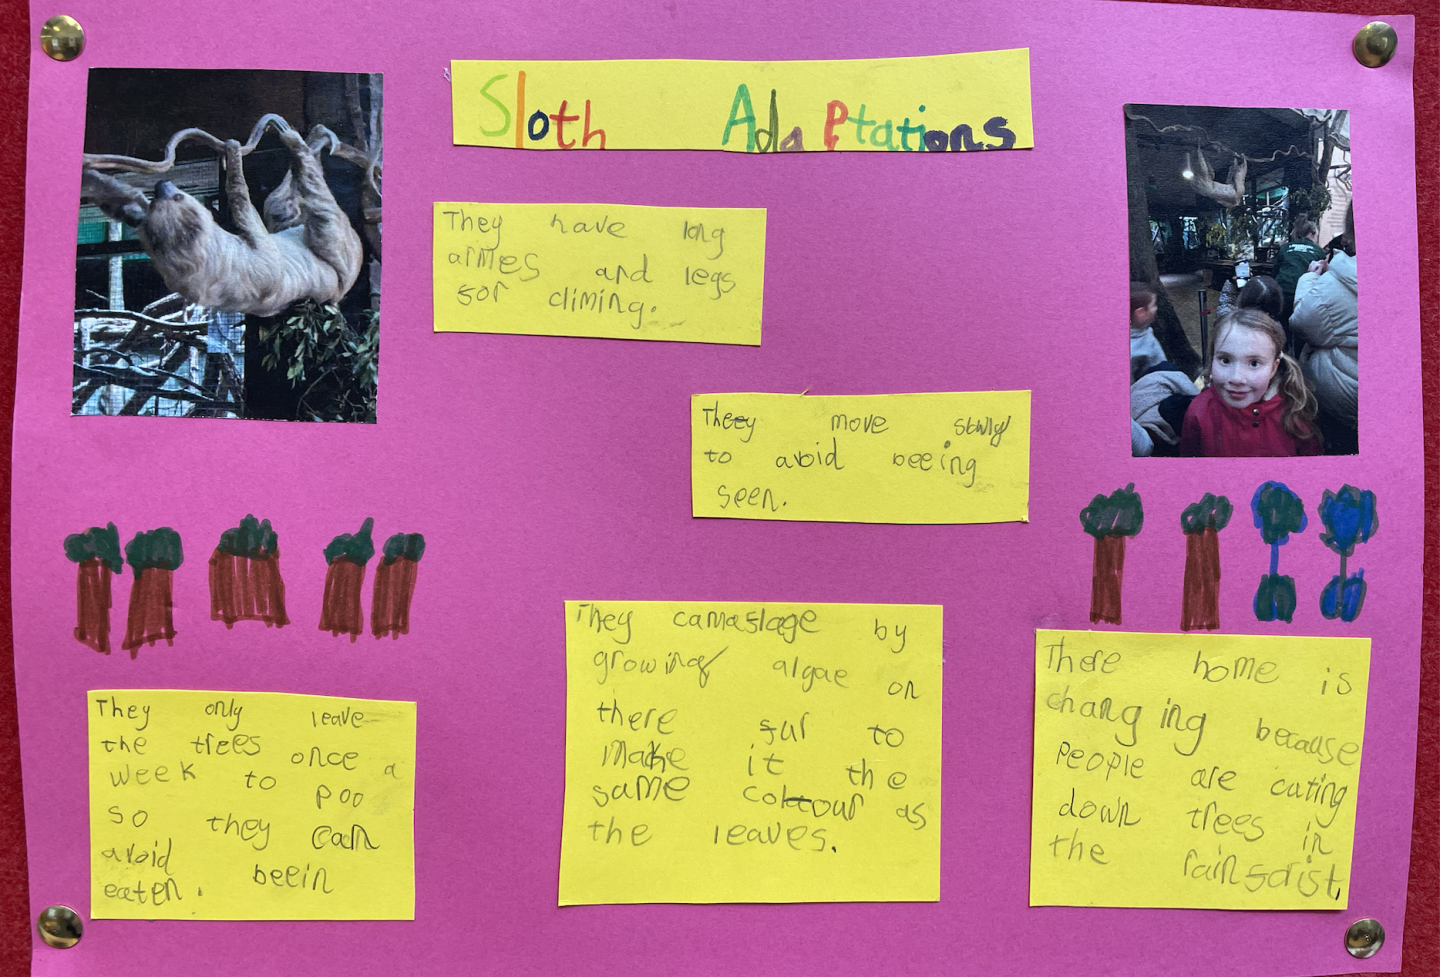 Sloth AdaPtations
They have long
armes and legs
for climing.
Theey move slowly
to avoid beeing
seen.
They only leave
the trees once a
week to poo
so they can
avoid beein
eaten.
They camaflage by
growing algae on
there fur to
make it the
same colour as
the leaves.
There home is
changing because
people are cuting
down trees in
the rainforist.